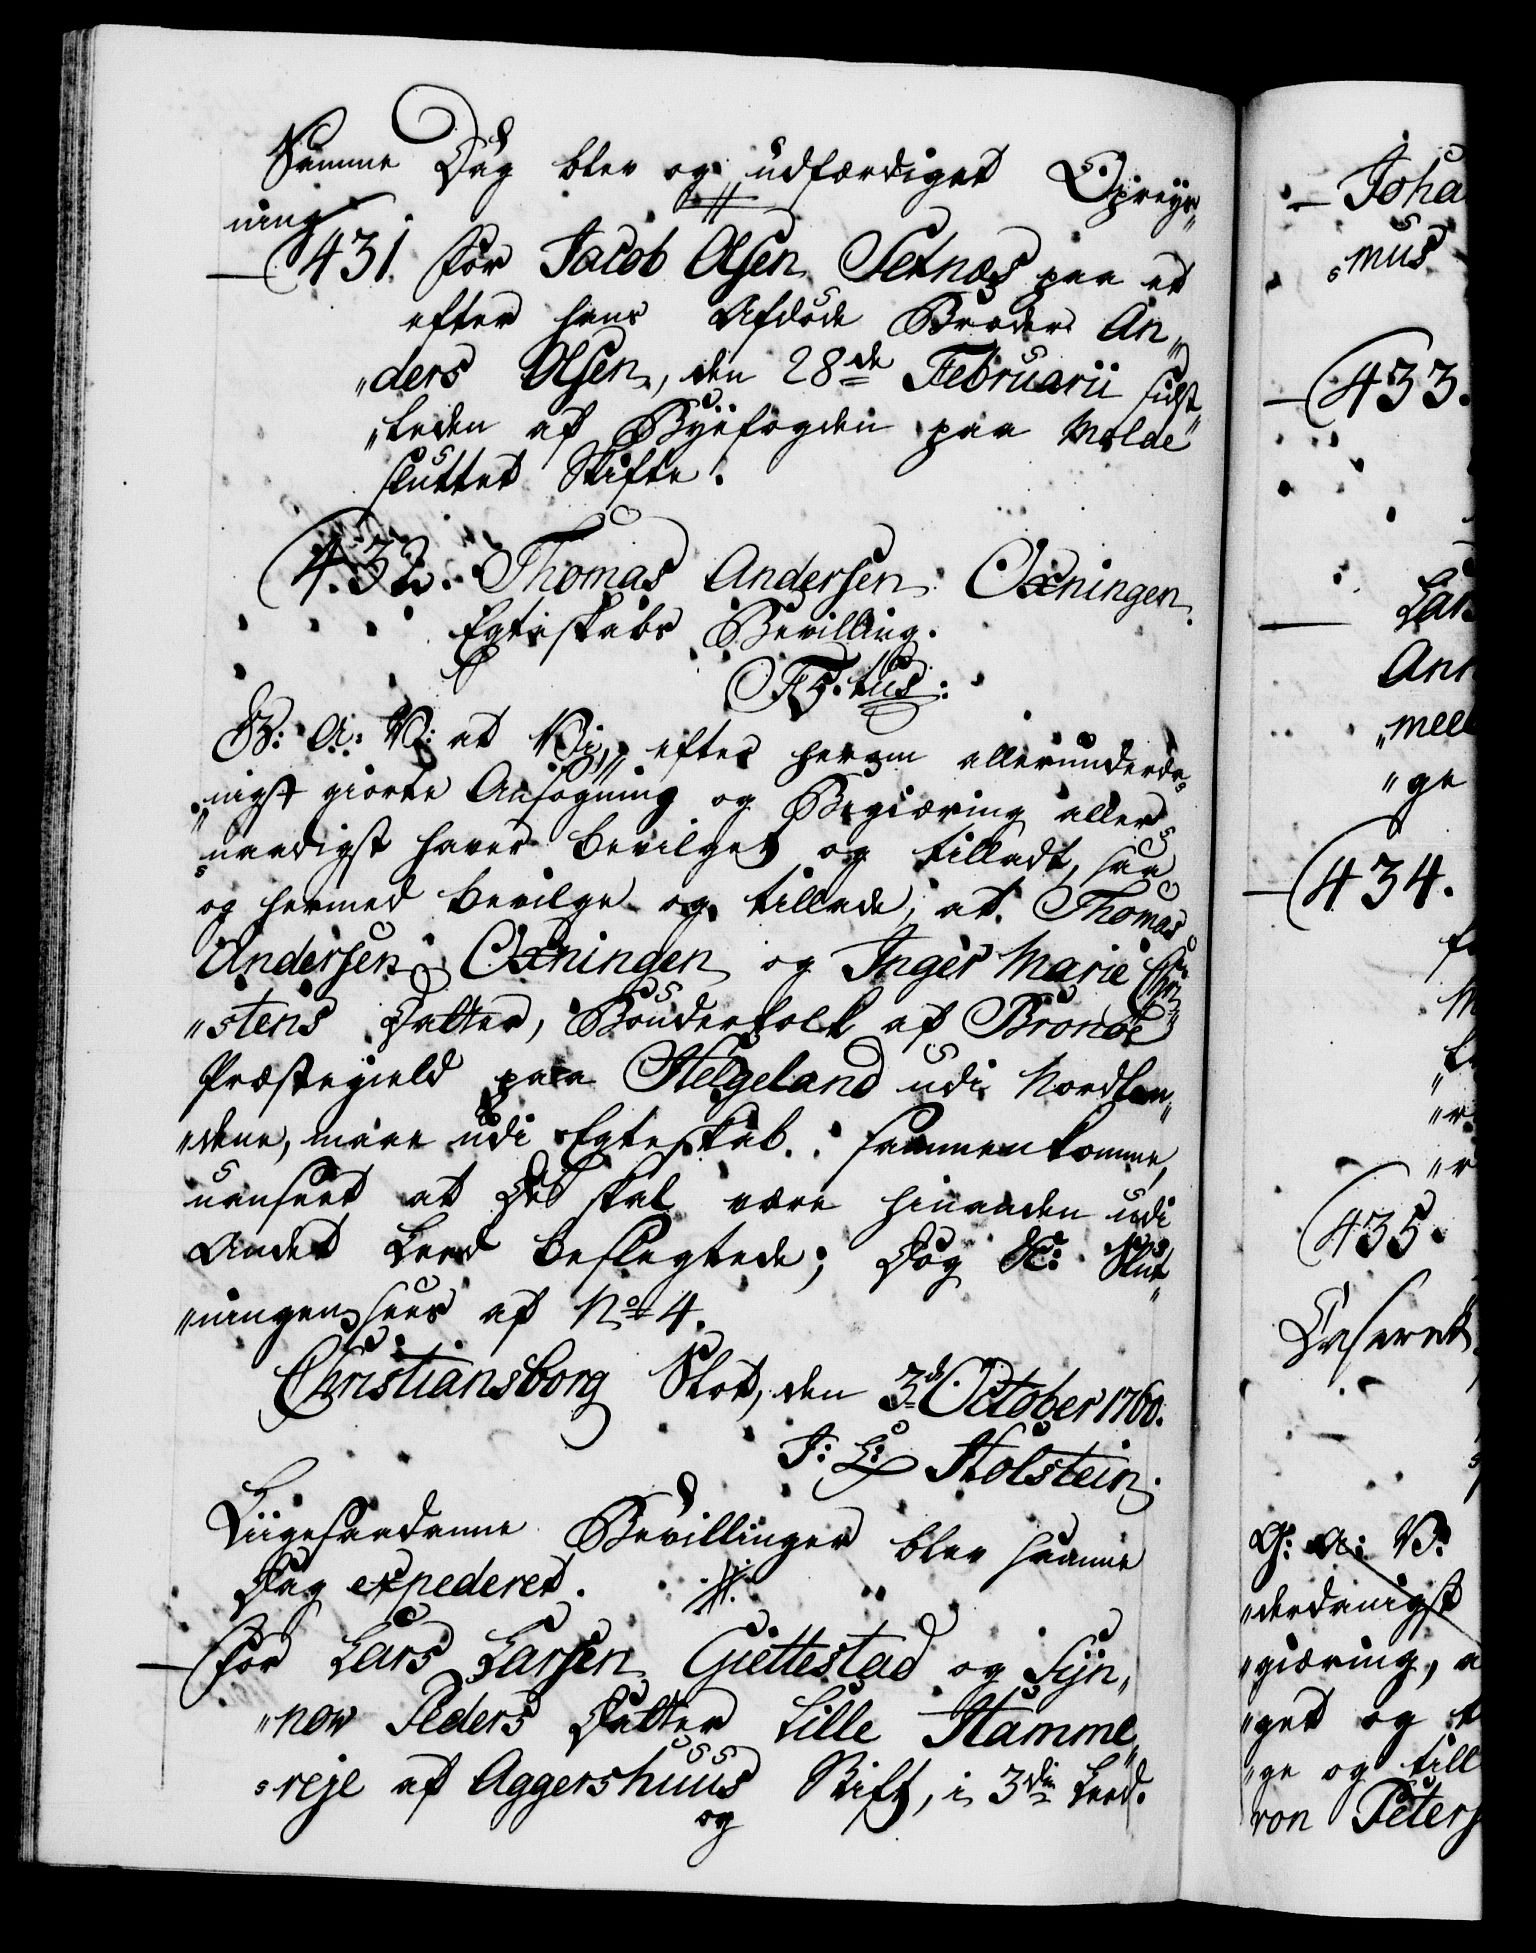 Samme Dag blev og udfærdiget Opreyß„
ning
431. for Jacob Olsen Setnæs paa et
efter hans Afdøde Broder An„
„ders Olsen, den 28de Februarii sidst„
„leden af Byefogden paa Molde
sluttet Skifte.
432. Thomas Andersen Oxningen
Egteskabs Bevilling.
F 5.tus:
G: A: V: at Vi, efter herom allerunderda„
„nigst giorte Ansøgning og Begiæring aller„
„naadigst haver bevilget og tilladt, saa
og hermed bevilge og tillade, at Thomas
Andersen Oxningen og Inger Marie Chri„
„stens Datter, Bønderfolk af Brønøe
Præstegield paa Helgeland udi Nordlan„
„dene, maae udi Egteskab sammenkomme,
uanseet at De skal være hinanden udi
Andet Leed beslegtede; Dog &c: Slut„
„ningen sees af No 4.
Christiansborg Slot, den 3d October 1760.
J: L: Holstein.
Liigesaadanne Bevillinger blev samme
Dag expederet.
For Lars Larsen Giettestad og Syn„
„nov Peders Datter Lille Hamme„
„reje af Aggershuus Stift, i 3die Leed.
og
Joha
„mus
433.
Lars
Ann
„meel
„ge
434.
435.
G: A: V:
„derdanigst
„giæring, a
„get og t
„ge og till
ron Peters